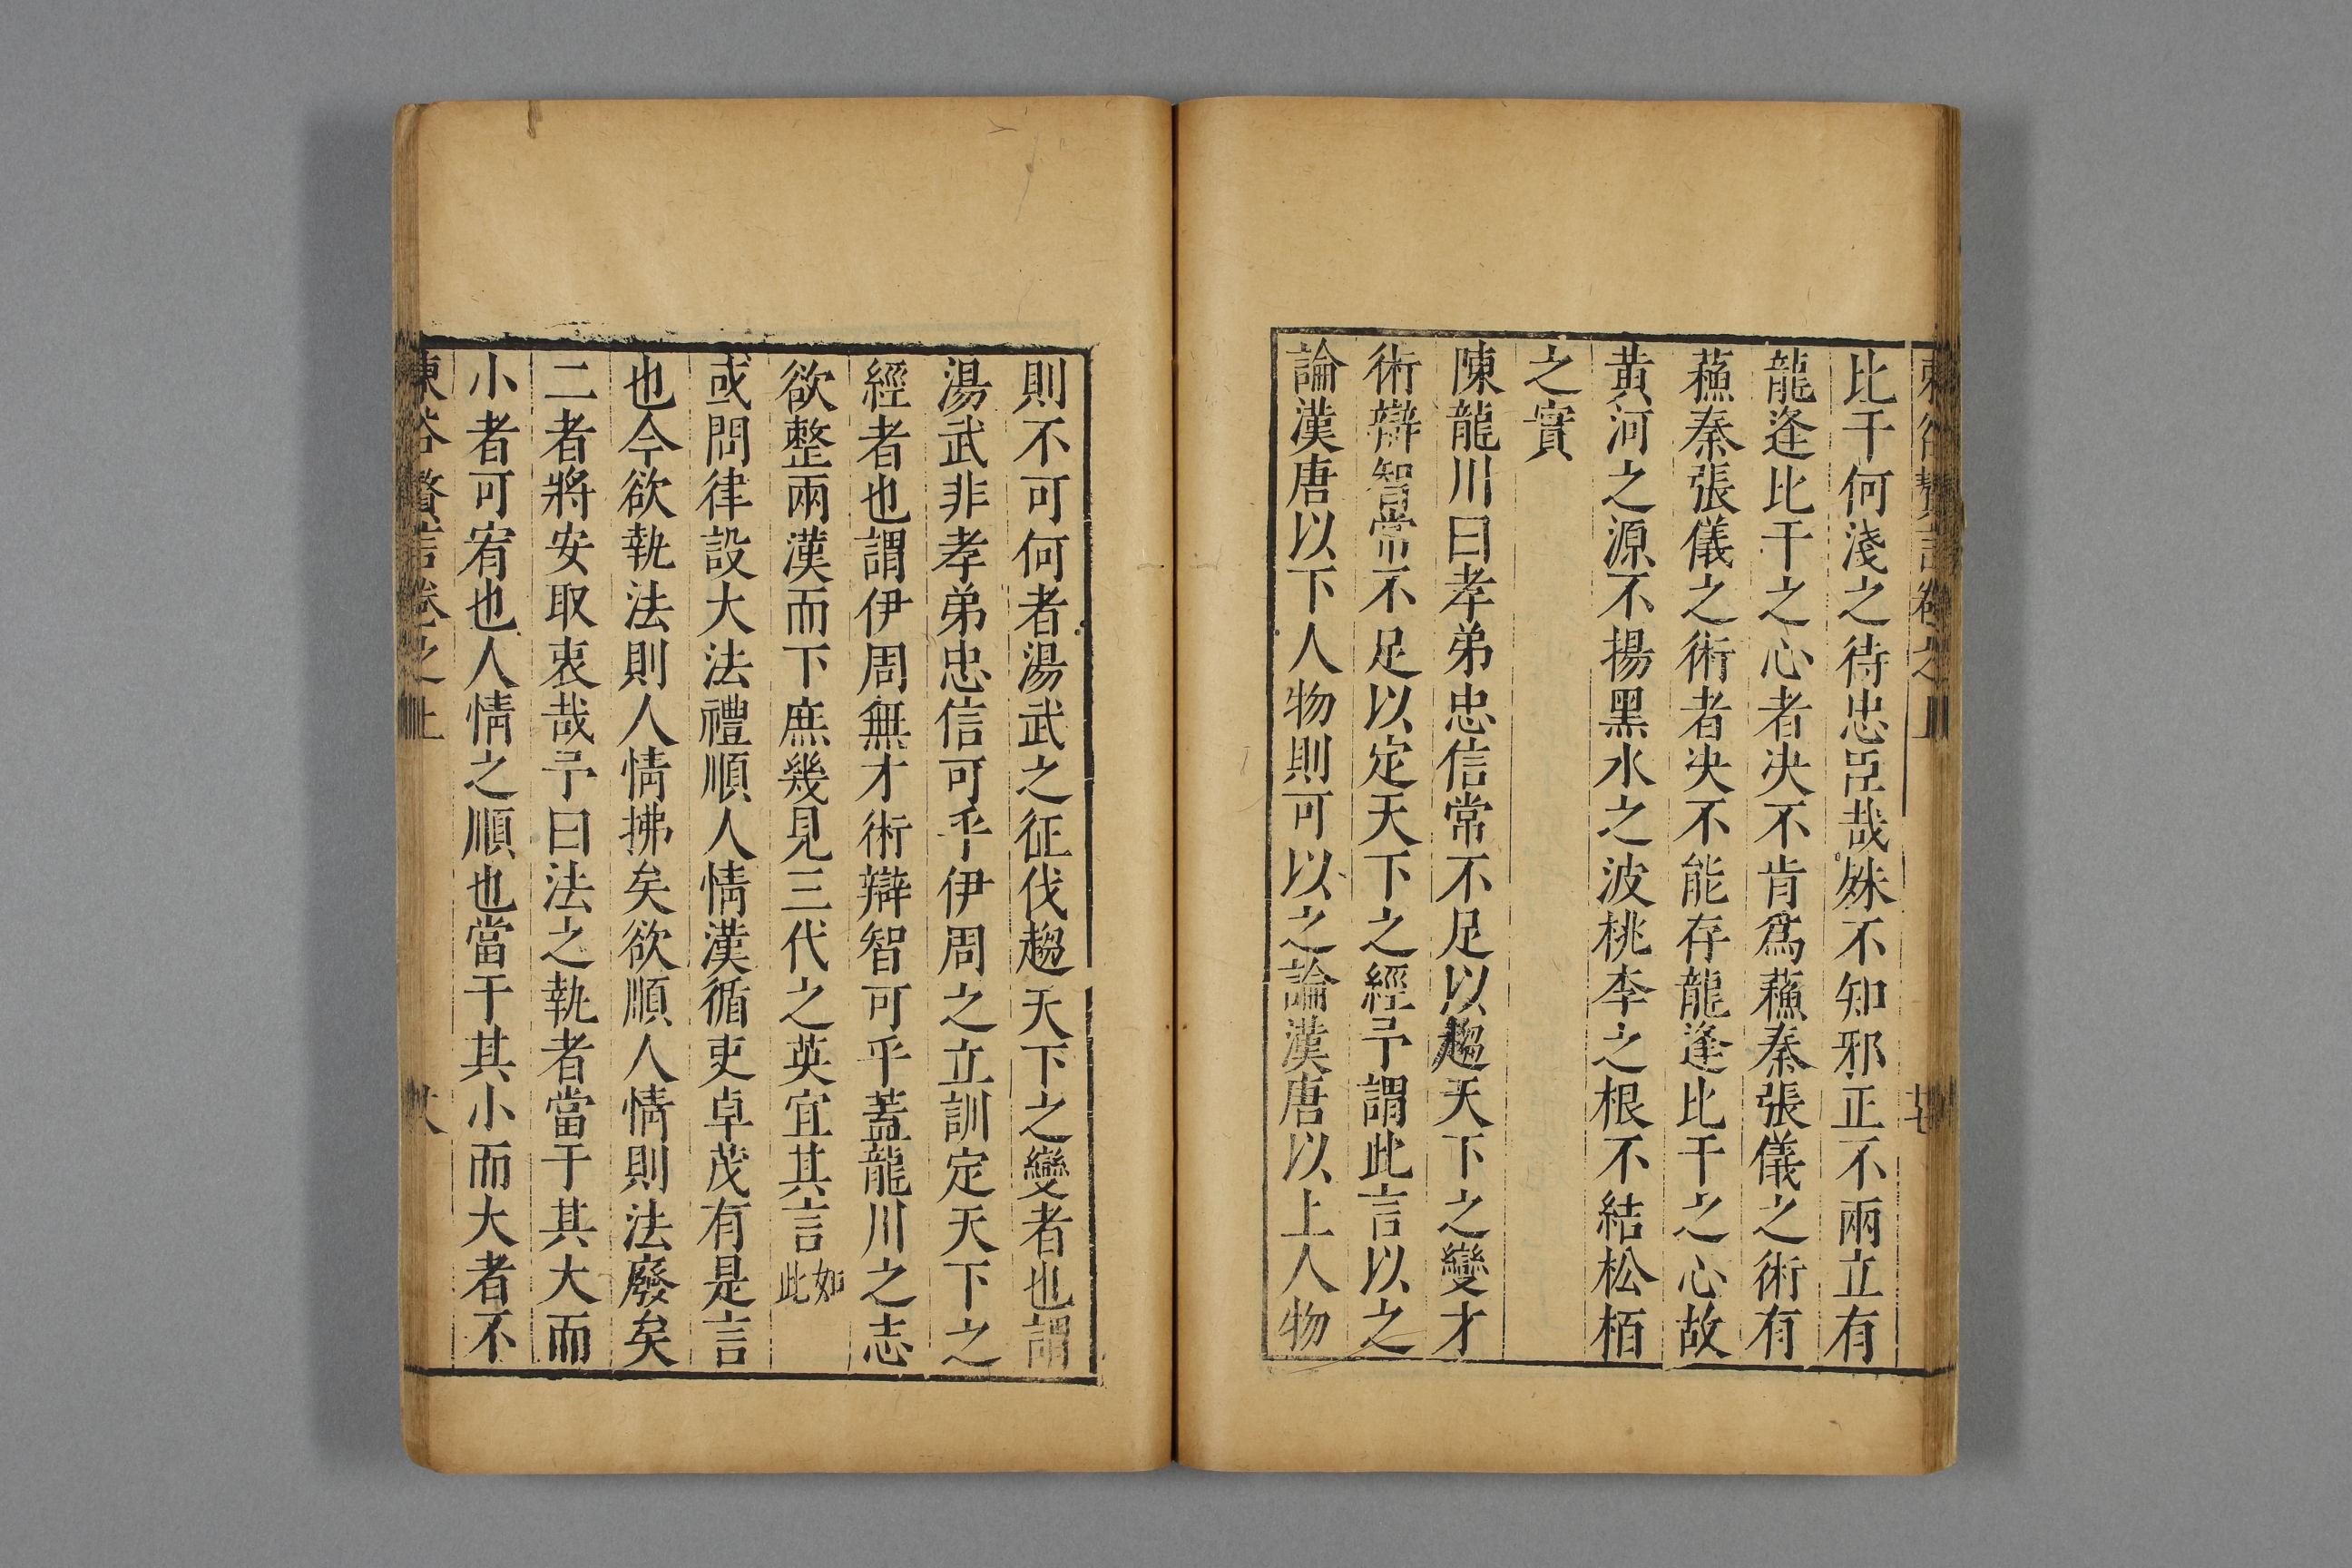 比干何淺之待忠臣哉殊不知邪正不兩立有
龍逄比干之心者决不肯爲蘓秦張儀之術有
蘓秦張儀之術者决不能存龍逄比干之心故
黃河之源不揚黑水之波桃李之根不結松栢
之實
陳龍川曰孝弟忠信常不足以趨天下之變才
術辯智常不足以定天下之經予謂此言以之
論漢唐以下人物則可以之論漢唐以上人物
則不可何者湯武之征伐趨天下之變者也謂
湯武非孝弟忠信可乎伊周之立訓定天下之
經者也謂伊周無才術辯智可乎蓋龍川之志
欲整兩漢而下庶幾見三代之英宜其言如此
或問律設大法禮順人情漢循吏卓茂有是言
也今欲執法則人情拂矣欲順人情則法廢矣
二者將安取衷哉予曰法之執者當于其大而
小者可宥也人情之順也當于其小而大者不
贅言卷之上